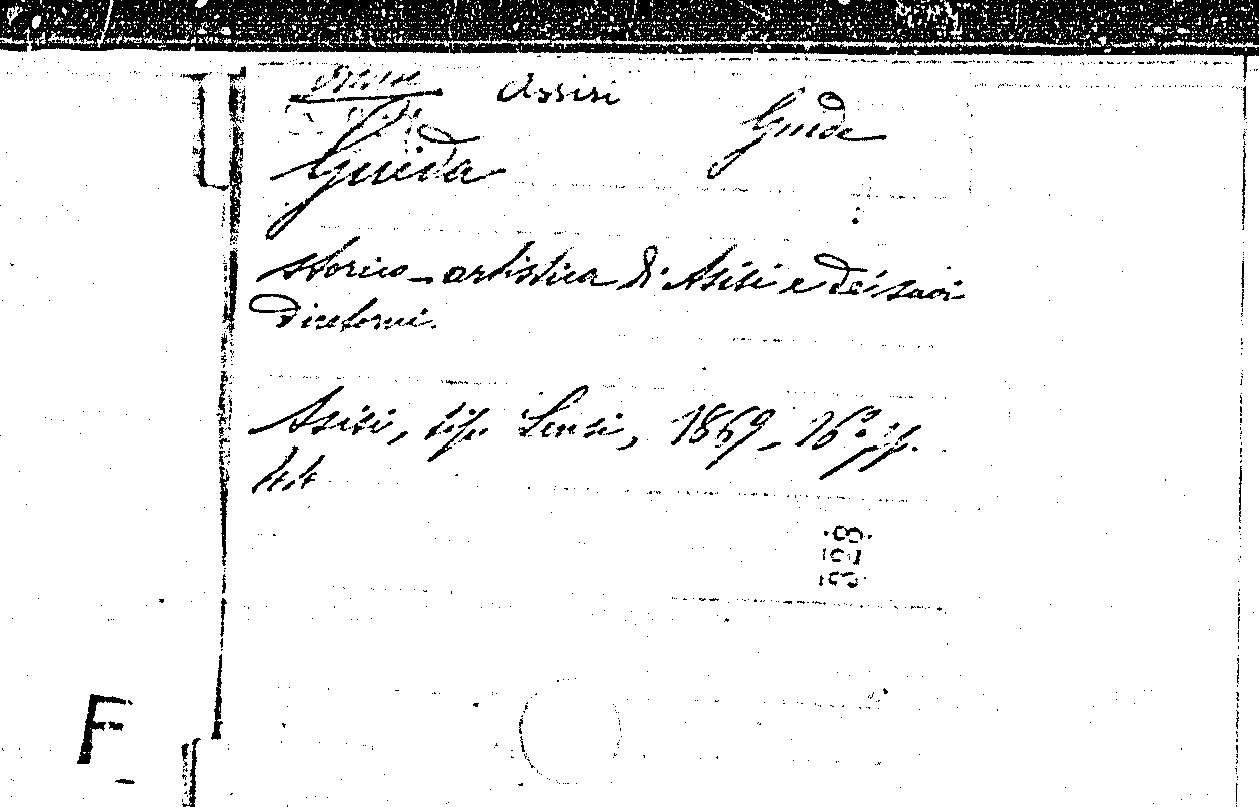 Assisi
Guide
Guida
storico-artistica di Asisi e de' suoi
dintorni.
Asisi, tip. Sensi, 1869, 16º pp.
44
328
F